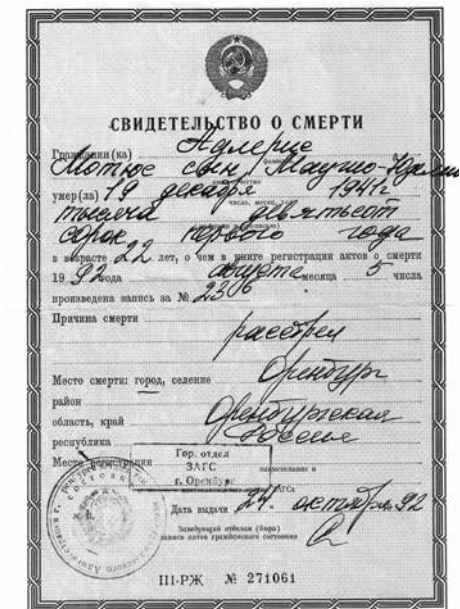 СВИДЕТЕЛЬСТВО О СМЕРТИ
Гражданин (ка) Адлерие
Мотюс сын
умер(ла) 19 декабря 1941г
число, месяц, год
тысяча девятьсот
сорок первого года
в возрасте 22 лет, о чем в книге регистрации актов о смерти
19 92 года августа месяца 5 числа
произведена запись за № 2306
Причина смерти
расстрел
Место смерти: город, селение Оренбург
район
область, край Оренбургская
республика Россия
Место регистрации
Гор. отдел
ЗАГС
г. Оренбург
наименование и
ЗАГСа
Дата выдачи 24. октября 92
М. П.
Заведующий отделом (бюро)
записи актов гражданского состояния
III-РЖ № 271061